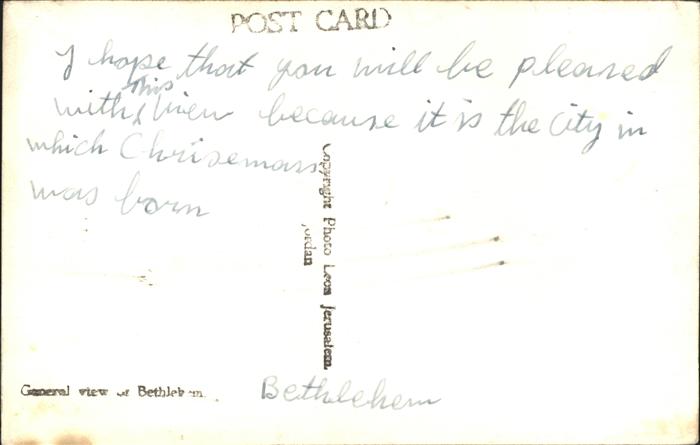 POST CARD
I hope that you will be pleased
with this view because it is the City in
which Chrisemass
was born
Copyright Photo Leon Jerusalem
Jordan
General view of Bethlehem
Bethlehem